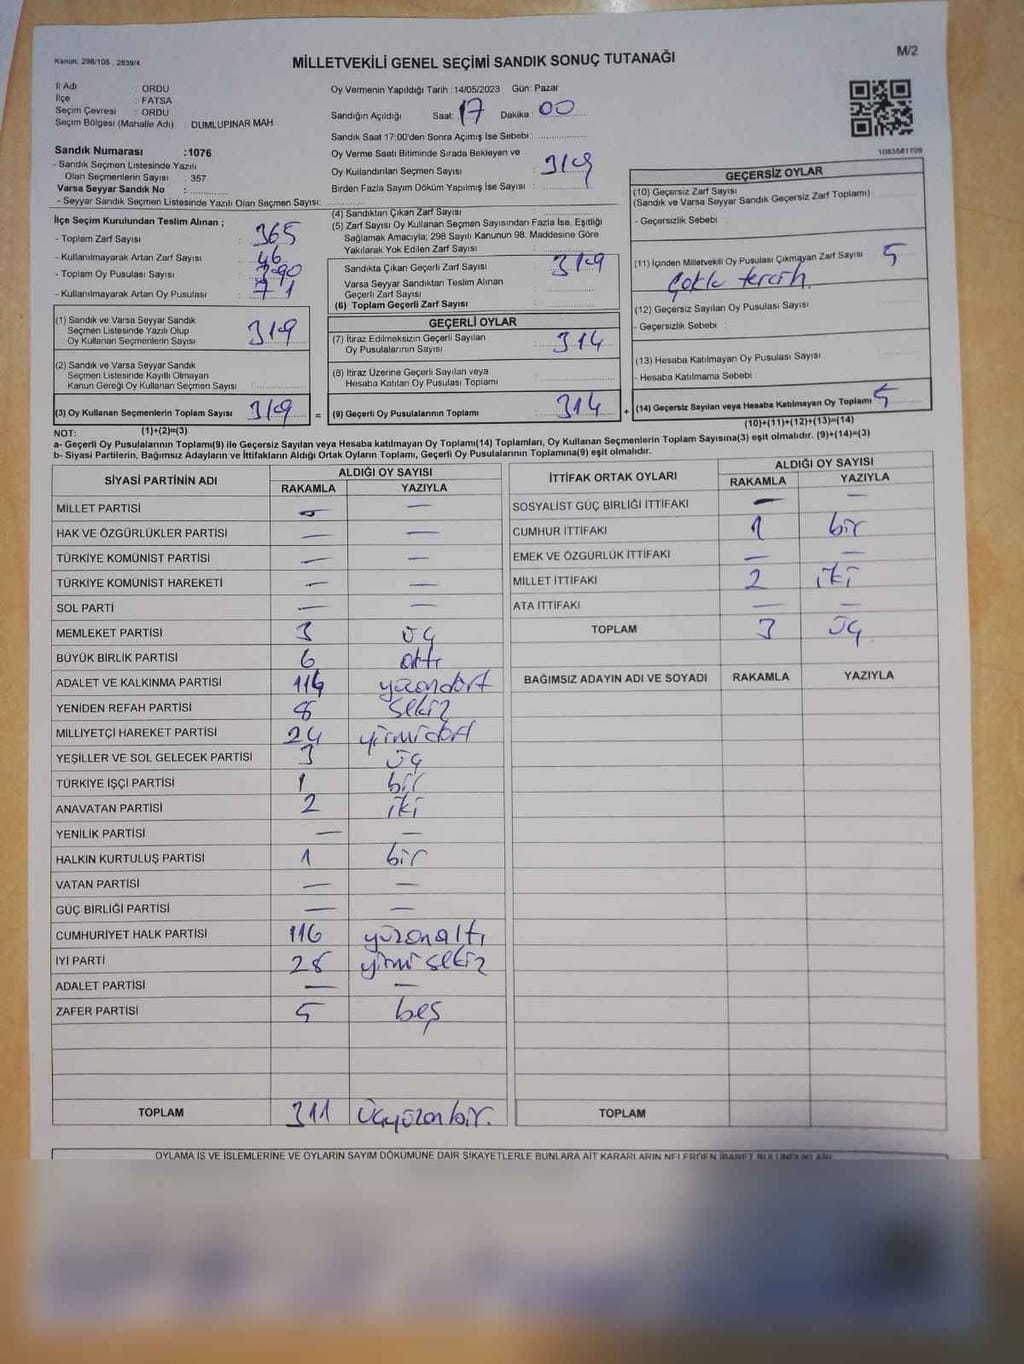 Kanun. 298/105 , 2839/4
M/2
MİLLETVEKİLİ GENEL SEÇİMİ SANDIK SONUÇ TUTANAĞI
İl Adı : ORDU
İlçe : FATSA
Seçim Çevresi : ORDU
Seçim Bölgesi (Mahalle Adı) : DUMLUPINAR MAH.
Sandık Numarası :1076
- Sandık Seçmen Listesinde Yazılı
Olan Seçmenlerin Sayısı : 357
Varsa Seyyar Sandık No :
- Seyyar Sandık Seçmen Listesinde Yazılı Olan Seçmen Sayısı:
Oy Vermenin Yapıldığı Tarih :14/05/2023 Gün: Pazar
Sandığın Açıldığı Saat: 17 Dakika: 00
Sandık Saat 17:00'den Sonra Açımış İse Sebebi :
Oy Verme Saati Bitiminde Sırada Bekleyen ve
Oy Kullandırılan Seçmen Sayısı : 319
Birden Fazla Sayım Döküm Yapılmış İse Sayısı :
1083581709
İlçe Seçim Kurulundan Teslim Alınan ;
- Toplam Zarf Sayısı : 365
- Kullanılmayarak Artan Zarf Sayısı : 46
- Toplam Oy Pusulası Sayısı : 390
- Kullanılmayarak Artan Oy Pusulası : 71
(1) Sandık ve Varsa Seyyar Sandık
Seçmen Listesinde Yazılı Olup
Oy Kullanan Seçmenlerin Sayısı : 319
(2) Sandık ve Varsa Seyyar Sandık
Seçmen Listesinde Kayıtlı Olmayan
Kanun Gereği Oy Kullanan Seçmen Sayısı :
(3) Oy Kullanan Seçmenlerin Toplam Sayısı : 319 =
(1)+(2)=(3)
(4) Sandıktan Çıkan Zarf Sayısı :
(5) Zarf Sayısı Oy Kullanan Seçmen Sayısından Fazla İse, Eşitliği
Sağlamak Amacıyla; 298 Sayılı Kanunun 98. Maddesine Göre
Yakılarak Yok Edilen Zarf Sayısı :
Sandıkta Çıkan Geçerli Zarf Sayısı : 319
Varsa Seyyar Sandıktan Teslim Alınan
Geçerli Zarf Sayısı :
(6) Toplam Geçerli Zarf Sayısı :
GEÇERLİ OYLAR
(7) İtiraz Edilmeksizin Geçerli Sayılan
Oy Pusulalarının Sayısı : 314
(8) İtiraz Üzerine Geçerli Sayılan veya
Hesaba Katılan Oy Pusulası Toplamı :
(9) Geçerli Oy Pusulalarının Toplamı : 314 +
GEÇERSİZ OYLAR
(10) Geçersiz Zarf Sayısı
(Sandık ve Varsa Seyyar Sandık Geçersiz Zarf Toplamı) :
- Geçersizlik Sebebi :
(11) İçinden Milletvekili Oy Pusulası Çıkmayan Zarf Sayısı : 5
Çoklu tercih
(12) Geçersiz Sayılan Oy Pusulası Sayısı :
- Geçersizlik Sebebi :
(13) Hesaba Katılmayan Oy Pusulası Sayısı :
- Hesaba Katılmama Sebebi :
(14) Geçersiz Sayılan veya Hesaba Katılmayan Oy Toplamı : 5
(10)+(11)+(12)+(13)=(14)
NOT:
a- Geçerli Oy Pusulalarının Toplamı(9) ile Geçersiz Sayılan veya Hesaba katılmayan Oy Toplamı(14) Toplamları, Oy Kullanan Seçmenlerin Toplam Sayısına(3) eşit olmalıdır. (9)+(14)=(3)
b- Siyasi Partilerin, Bağımsız Adayların ve İttifakların Aldığı Ortak Oyların Toplamı, Geçerli Oy Pusulalarının Toplamına(9) eşit olmalıdır.
SİYASİ PARTİNİN ADI
ALDIĞI OY SAYISI
RAKAMLA YAZIYLA
MİLLET PARTİSİ — —
HAK VE ÖZGÜRLÜKLER PARTİSİ — —
TÜRKİYE KOMÜNİST PARTİSİ — —
TÜRKİYE KOMÜNİST HAREKETİ — —
SOL PARTİ — —
MEMLEKET PARTİSİ 3 üç
BÜYÜK BİRLİK PARTİSİ 6 altı
ADALET VE KALKINMA PARTİSİ 114 yüzondört
YENİDEN REFAH PARTİSİ 8 sekiz
MİLLİYETÇİ HAREKET PARTİSİ 24 yirmidört
YEŞİLLER VE SOL GELECEK PARTİSİ 3 üç
TÜRKİYE İŞÇİ PARTİSİ 1 bir
ANAVATAN PARTİSİ 2 iki
YENİLİK PARTİSİ — —
HALKIN KURTULUŞ PARTİSİ 1 bir
VATAN PARTİSİ — —
GÜÇ BİRLİĞİ PARTİSİ — —
CUMHURİYET HALK PARTİSİ 116 yüzonaltı
İYİ PARTİ 28 yirmi sekiz
ADALET PARTİSİ — —
ZAFER PARTİSİ 5 beş
TOPLAM 311 üçyüzonbir.
İTTİFAK ORTAK OYLARI
ALDIĞI OY SAYISI
RAKAMLA YAZIYLA
SOSYALİST GÜÇ BİRLİĞİ İTTİFAKI — —
CUMHUR İTTİFAKI 1 bir
EMEK VE ÖZGÜRLÜK İTTİFAKI — —
MİLLET İTTİFAKI 2 iki
ATA İTTİFAKI — —
TOPLAM 3 üç
BAĞIMSIZ ADAYIN ADI VE SOYADI RAKAMLA YAZIYLA
TOPLAM
OYLAMA İŞ VE İŞLEMLERİNE VE OYLARIN SAYIM DÖKÜMÜNE DAİR ŞİKAYETLERLE BUNLARA AİT KARARLARIN NELERDEN İBARET BULUNDUKLARI